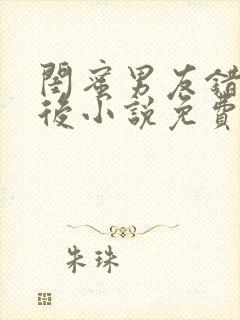 閨蜜男友錯
後小說免費
朱珠